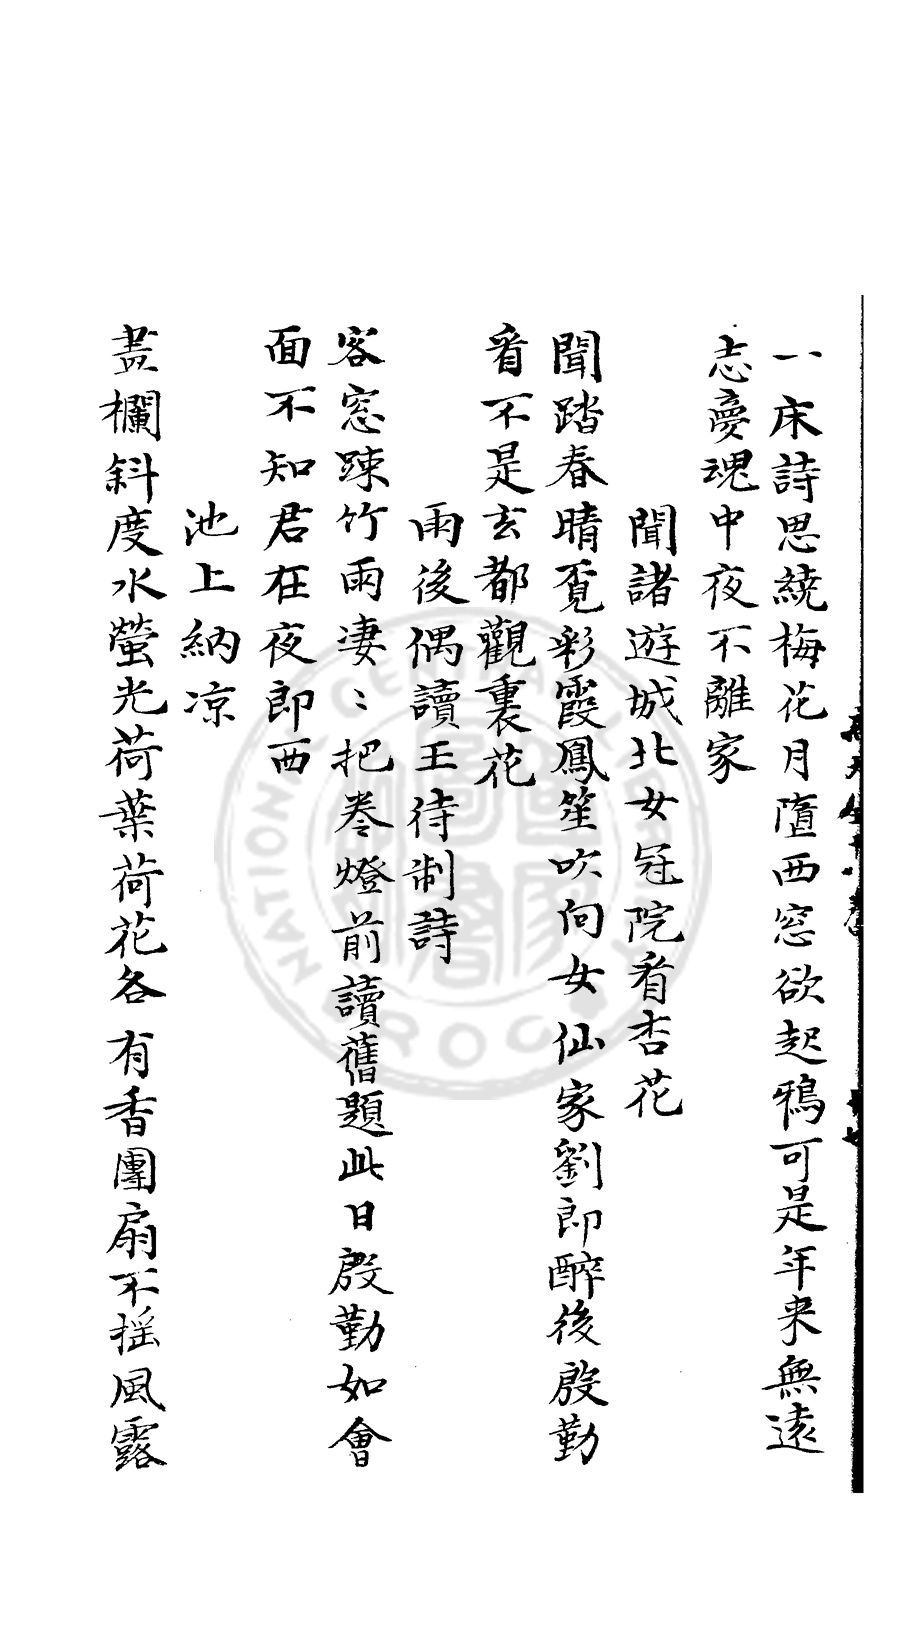 一床詩思繞梅花月墮西窓欲起鴉可是年来無遠
志夣魂中夜不離家
聞諸遊城北女冠院看杏花
聞踏春晴覔彩霞鳳笙吹向女仙家劉郎醉後殷勤
看不是玄都觀裏花
雨後偶讀王待制詩
客窓踈竹雨凄〻把卷燈前讀舊題此日殷勤如會
面不知君在夜郎西
池上納凉
畫欄斜度水螢光荷葉荷花各有香團扇不摇風露
NATIONAL CENTRAL LIBRARY
R.O.C.